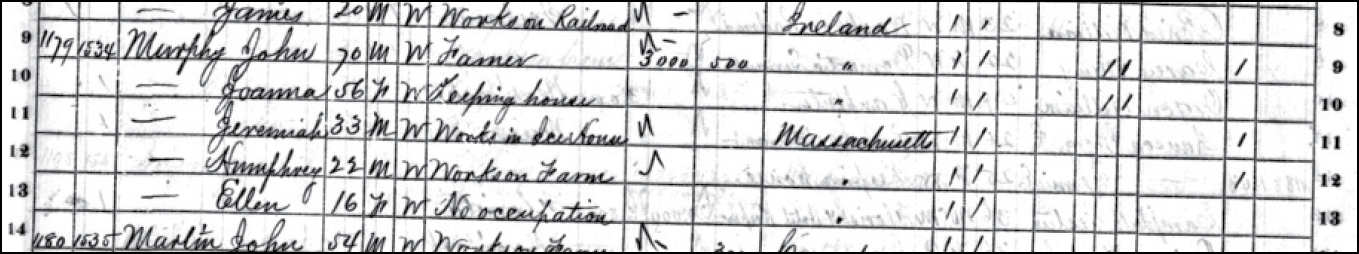 8 James 20 M W Works on Railroad Ireland 1 1 8
9 1179 1534 Murphy John 70 M W Famer 3000 500 " 1 1 1 1 1 9
10 — Joanna 56 F W Keeping house " 1 1 1 1 10
11 — Jeremiah 33 M W Works in Massachusetts 1 1 1 11
12 — Humphrey 22 M W Works on Farm " 1 1 1 12
13 — Ellen 16 F W No occupation " 1 1 13
14 1180 1535 Martin John 54 M W Works on